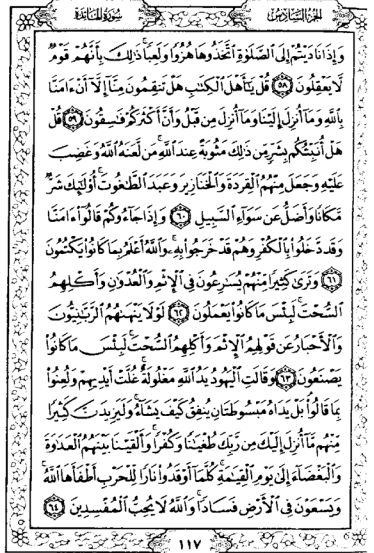 الجزء السادس سورة المائدة
وَإِذَا نَادَيْتُمْ إِلَى ٱلصَّلَوٰةِ ٱتَّخَذُوهَا هُزُوًا وَلَعِبًا ۚ ذَٰلِكَ بِأَنَّهُمْ قَوْمٌ
لَّا يَعْقِلُونَ ٥٨ قُلْ يَٰٓأَهْلَ ٱلْكِتَٰبِ هَلْ تَنقِمُونَ مِنَّآ إِلَّآ أَنْ ءَامَنَّا
بِٱللَّهِ وَمَآ أُنزِلَ إِلَيْنَا وَمَآ أُنزِلَ مِن قَبْلُ وَأَنَّ أَكْثَرَكُمْ فَٰسِقُونَ ٥٩ قُلْ
هَلْ أُنَبِّئُكُم بِشَرٍّ مِّن ذَٰلِكَ مَثُوبَةً عِندَ ٱللَّهِ ۚ مَن لَّعَنَهُ ٱللَّهُ وَغَضِبَ
عَلَيْهِ وَجَعَلَ مِنْهُمُ ٱلْقِرَدَةَ وَٱلْخَنَازِيرَ وَعَبَدَ ٱلطَّٰغُوتَ ۚ أُو۟لَٰٓئِكَ شَرٌّ
مَّكَانًا وَأَضَلُّ عَن سَوَآءِ ٱلسَّبِيلِ ٦٠ وَإِذَا جَآءُوكُمْ قَالُوٓا۟ ءَامَنَّا
وَقَد دَّخَلُوا۟ بِٱلْكُفْرِ وَهُمْ قَدْ خَرَجُوا۟ بِهِۦ ۚ وَٱللَّهُ أَعْلَمُ بِمَا كَانُوا۟ يَكْتُمُونَ
٦١ وَتَرَىٰ كَثِيرًا مِّنْهُمْ يُسَٰرِعُونَ فِى ٱلْإِثْمِ وَٱلْعُدْوَٰنِ وَأَكْلِهِمُ
ٱلسُّحْتَ ۚ لَبِئْسَ مَا كَانُوا۟ يَعْمَلُونَ ٦٢ لَوْلَا يَنْهَىٰهُمُ ٱلرَّبَّٰنِيُّونَ
وَٱلْأَحْبَارُ عَن قَوْلِهِمُ ٱلْإِثْمَ وَأَكْلِهِمُ ٱلسُّحْتَ ۚ لَبِئْسَ مَا كَانُوا۟
يَصْنَعُونَ ٦٣ وَقَالَتِ ٱلْيَهُودُ يَدُ ٱللَّهِ مَغْلُولَةٌ ۚ غُلَّتْ أَيْدِيهِمْ وَلُعِنُوا۟
بِمَا قَالُوا۟ ۘ بَلْ يَدَاهُ مَبْسُوطَتَانِ يُنفِقُ كَيْفَ يَشَآءُ ۚ وَلَيَزِيدَنَّ كَثِيرًا
مِّنْهُم مَّآ أُنزِلَ إِلَيْكَ مِن رَّبِّكَ طُغْيَٰنًا وَكُفْرًا ۚ وَأَلْقَيْنَا بَيْنَهُمُ ٱلْعَدَٰوَةَ
وَٱلْبَغْضَآءَ إِلَىٰ يَوْمِ ٱلْقِيَٰمَةِ ۚ كُلَّمَآ أَوْقَدُوا۟ نَارًا لِّلْحَرْبِ أَطْفَأَهَا ٱللَّهُ ۚ
وَيَسْعَوْنَ فِى ٱلْأَرْضِ فَسَادًا ۚ وَٱللَّهُ لَا يُحِبُّ ٱلْمُفْسِدِينَ ٦٤
١١٧